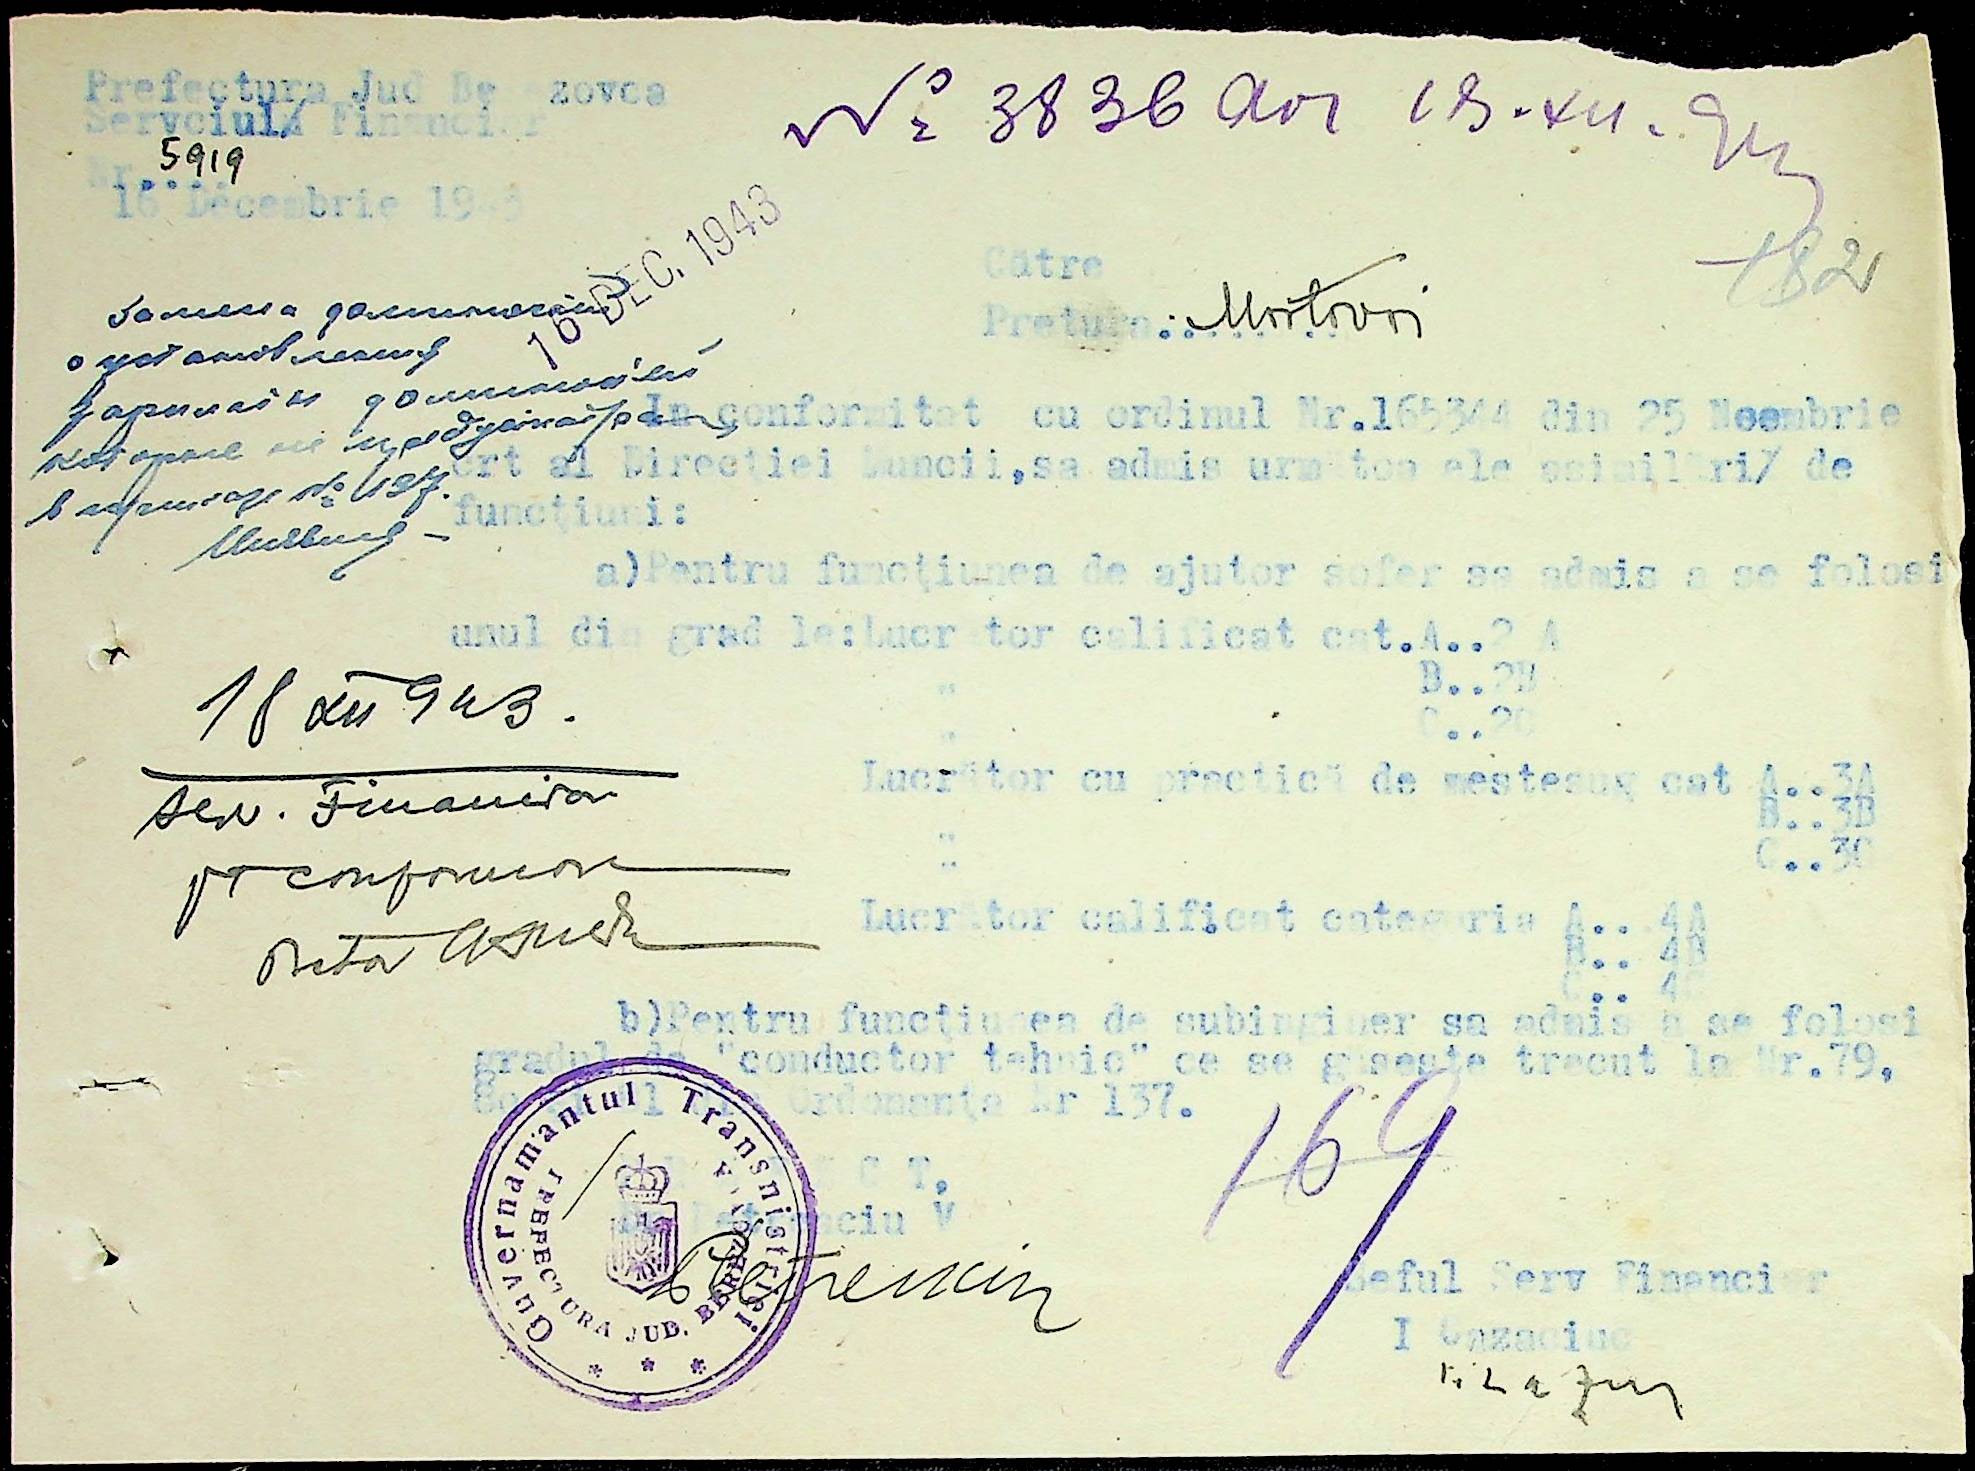 Prefectura Jud Be ezovca
Servciul/ Financiar
Nr... 5919
16 Decembrie 1943
№ 3836
16 DEC. 1943
182
Către
Pretura...... Mostovoi
In conformitat cu ordinul Nr.165344 din 25 Noembrie
crt al Direcției Muncii,sa admis următoa ele asimilări/ de
funcțiuni:
a)Pentru funcțiunea de ajutor sofer sa admis a se folosi
unul din grad le:Lucrător calificat cat.A..2 A
" B..2B
" C..2C
Lucrător cu practică de mestesug cat A..3A
B..3B
" C..3C
Lucrător calificat categoria A.. 4A
B.. 4B
C.. 4C
b)Pentru funcțiunea de subinginer sa admis a se folosi
gradul de "conductor tehnic" ce se găseste trecut la Nr.79,
Ordonanța Nr 137.
о установлении
которые не
18 XII 943.
Serv. Financiar
pt conformare
169
P R E F E C T,
Petrenciu V
Petrenciu
Guvernamantul Transnistriei
PREFECTURA JUD. BEREZOVCA
* * *
Seful Serv Financiar
I Cazaciuc